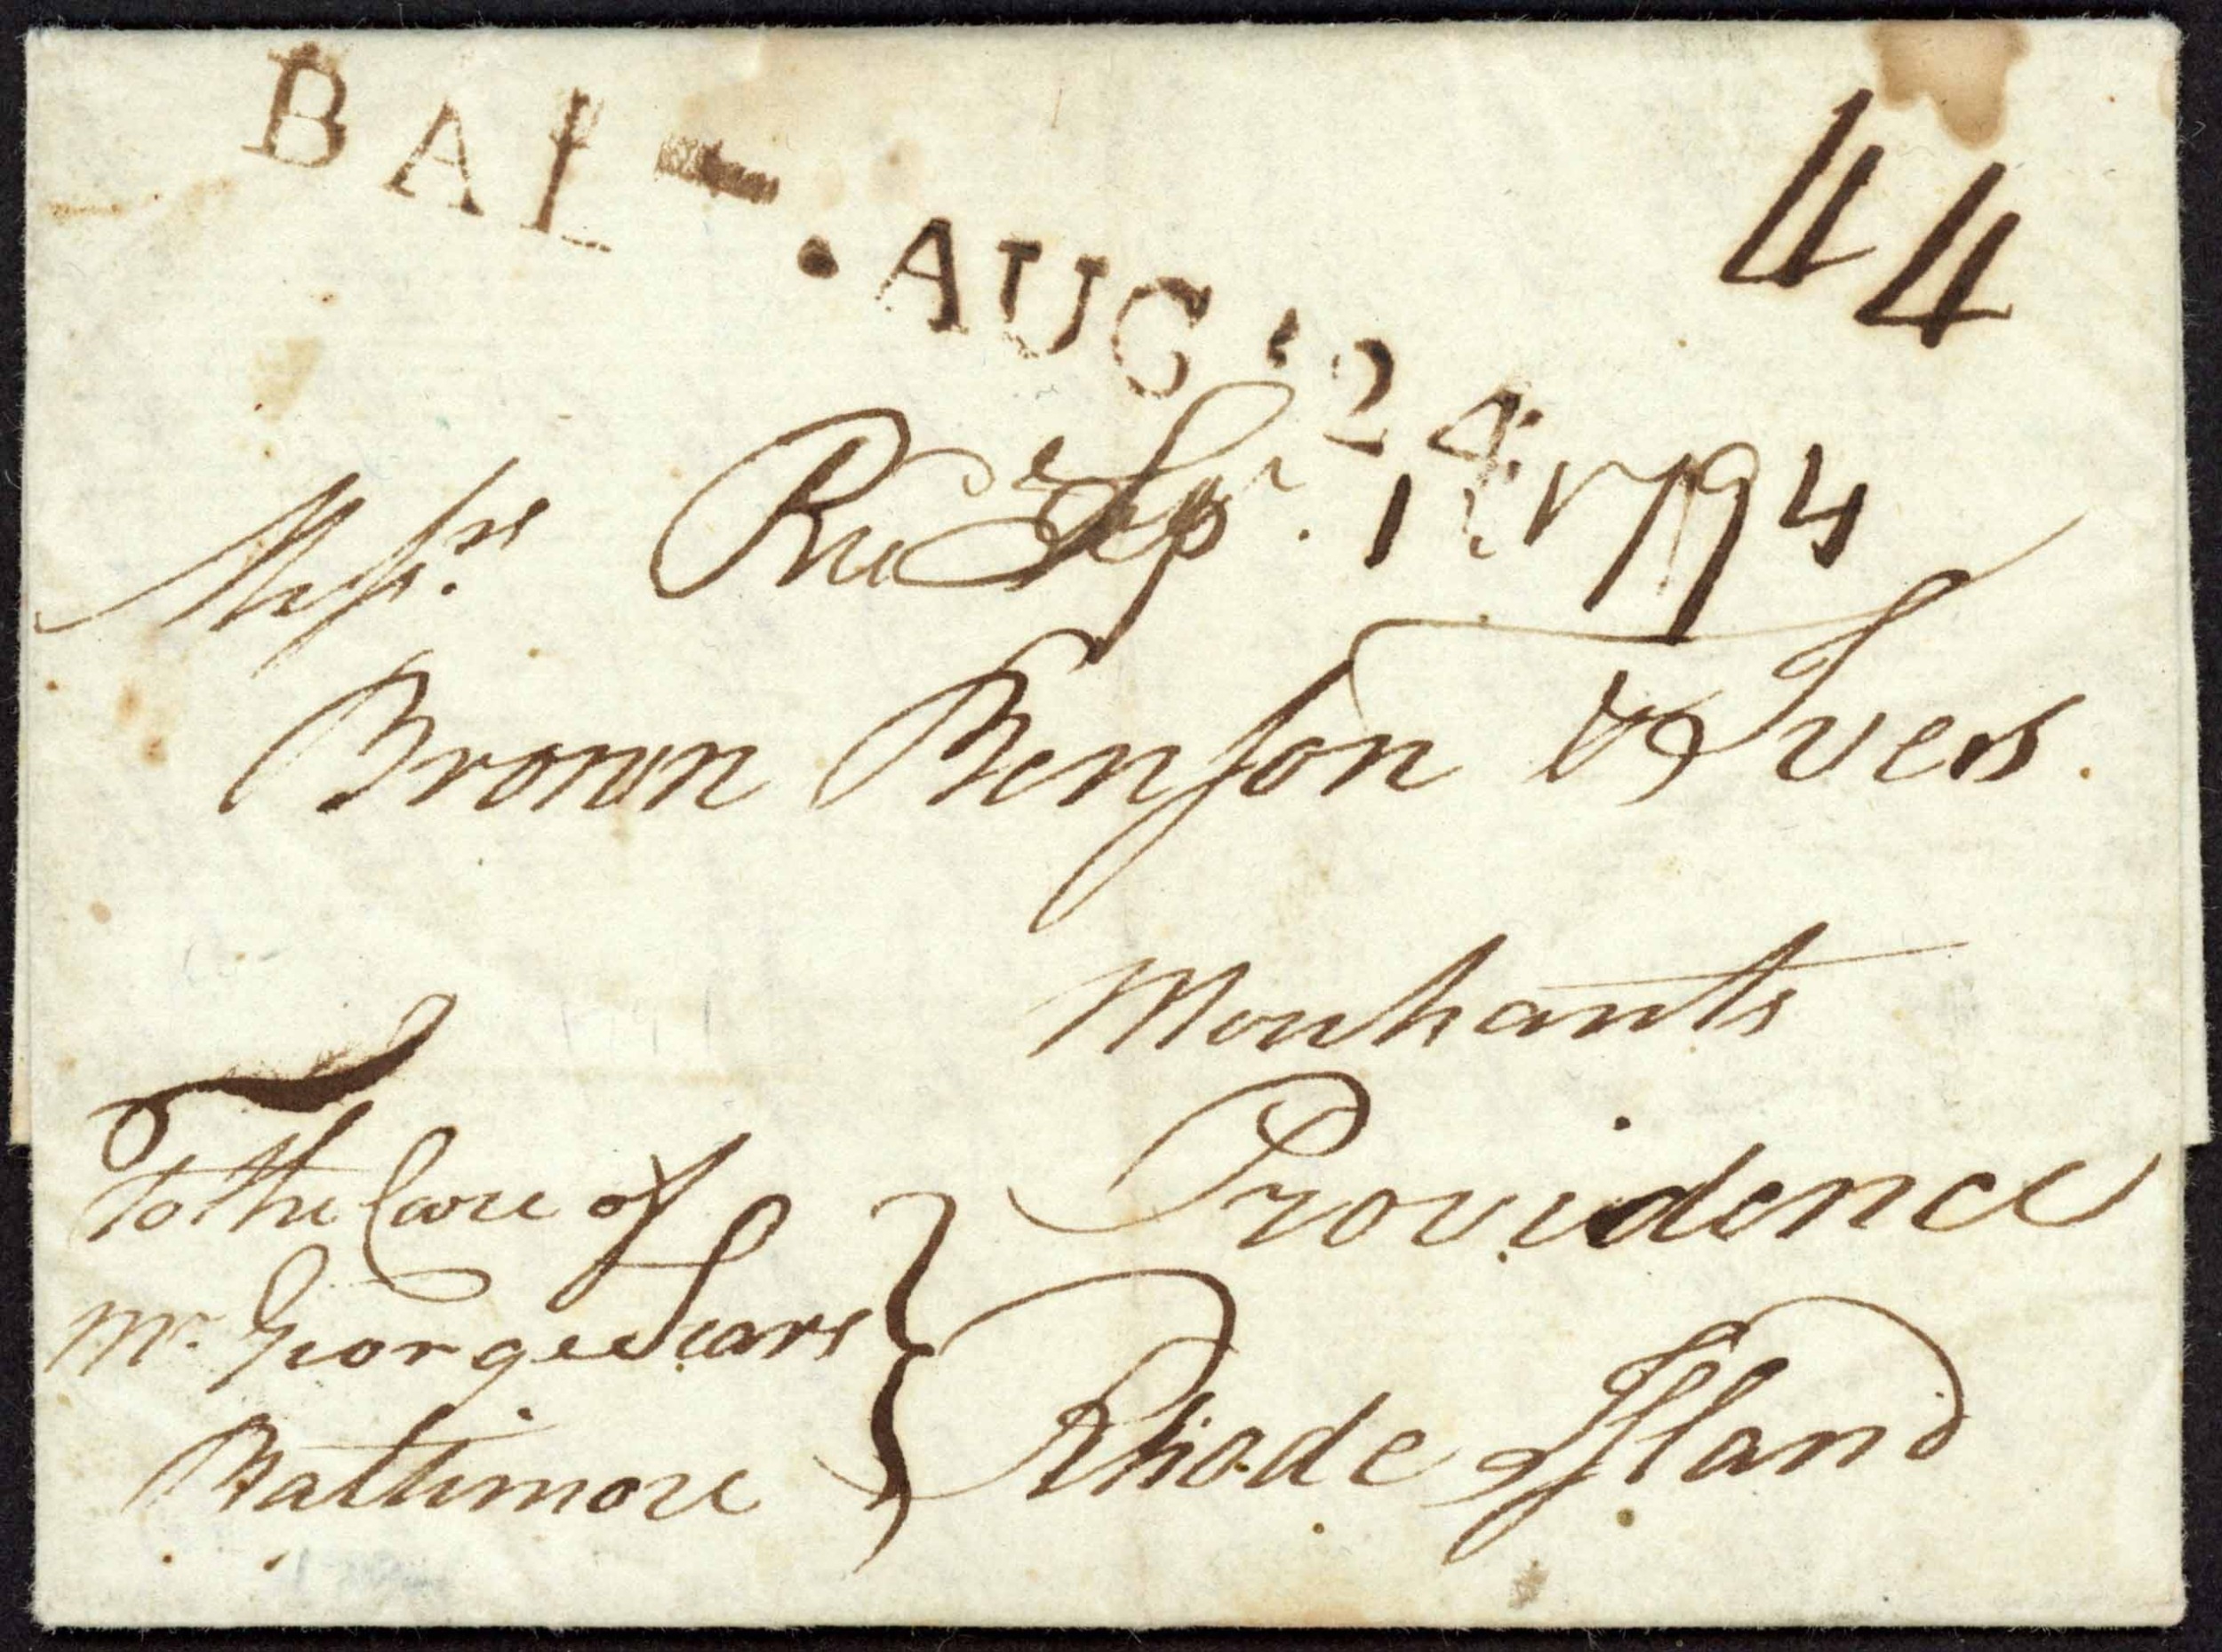 BAL — . AUG • 24
44
Recd Sepr. 1 1794
Messrs
Brown Benson & Ives.
Merchants
Providence
Rhode Island
To the Care of
Mr. George Sears
Baltimore